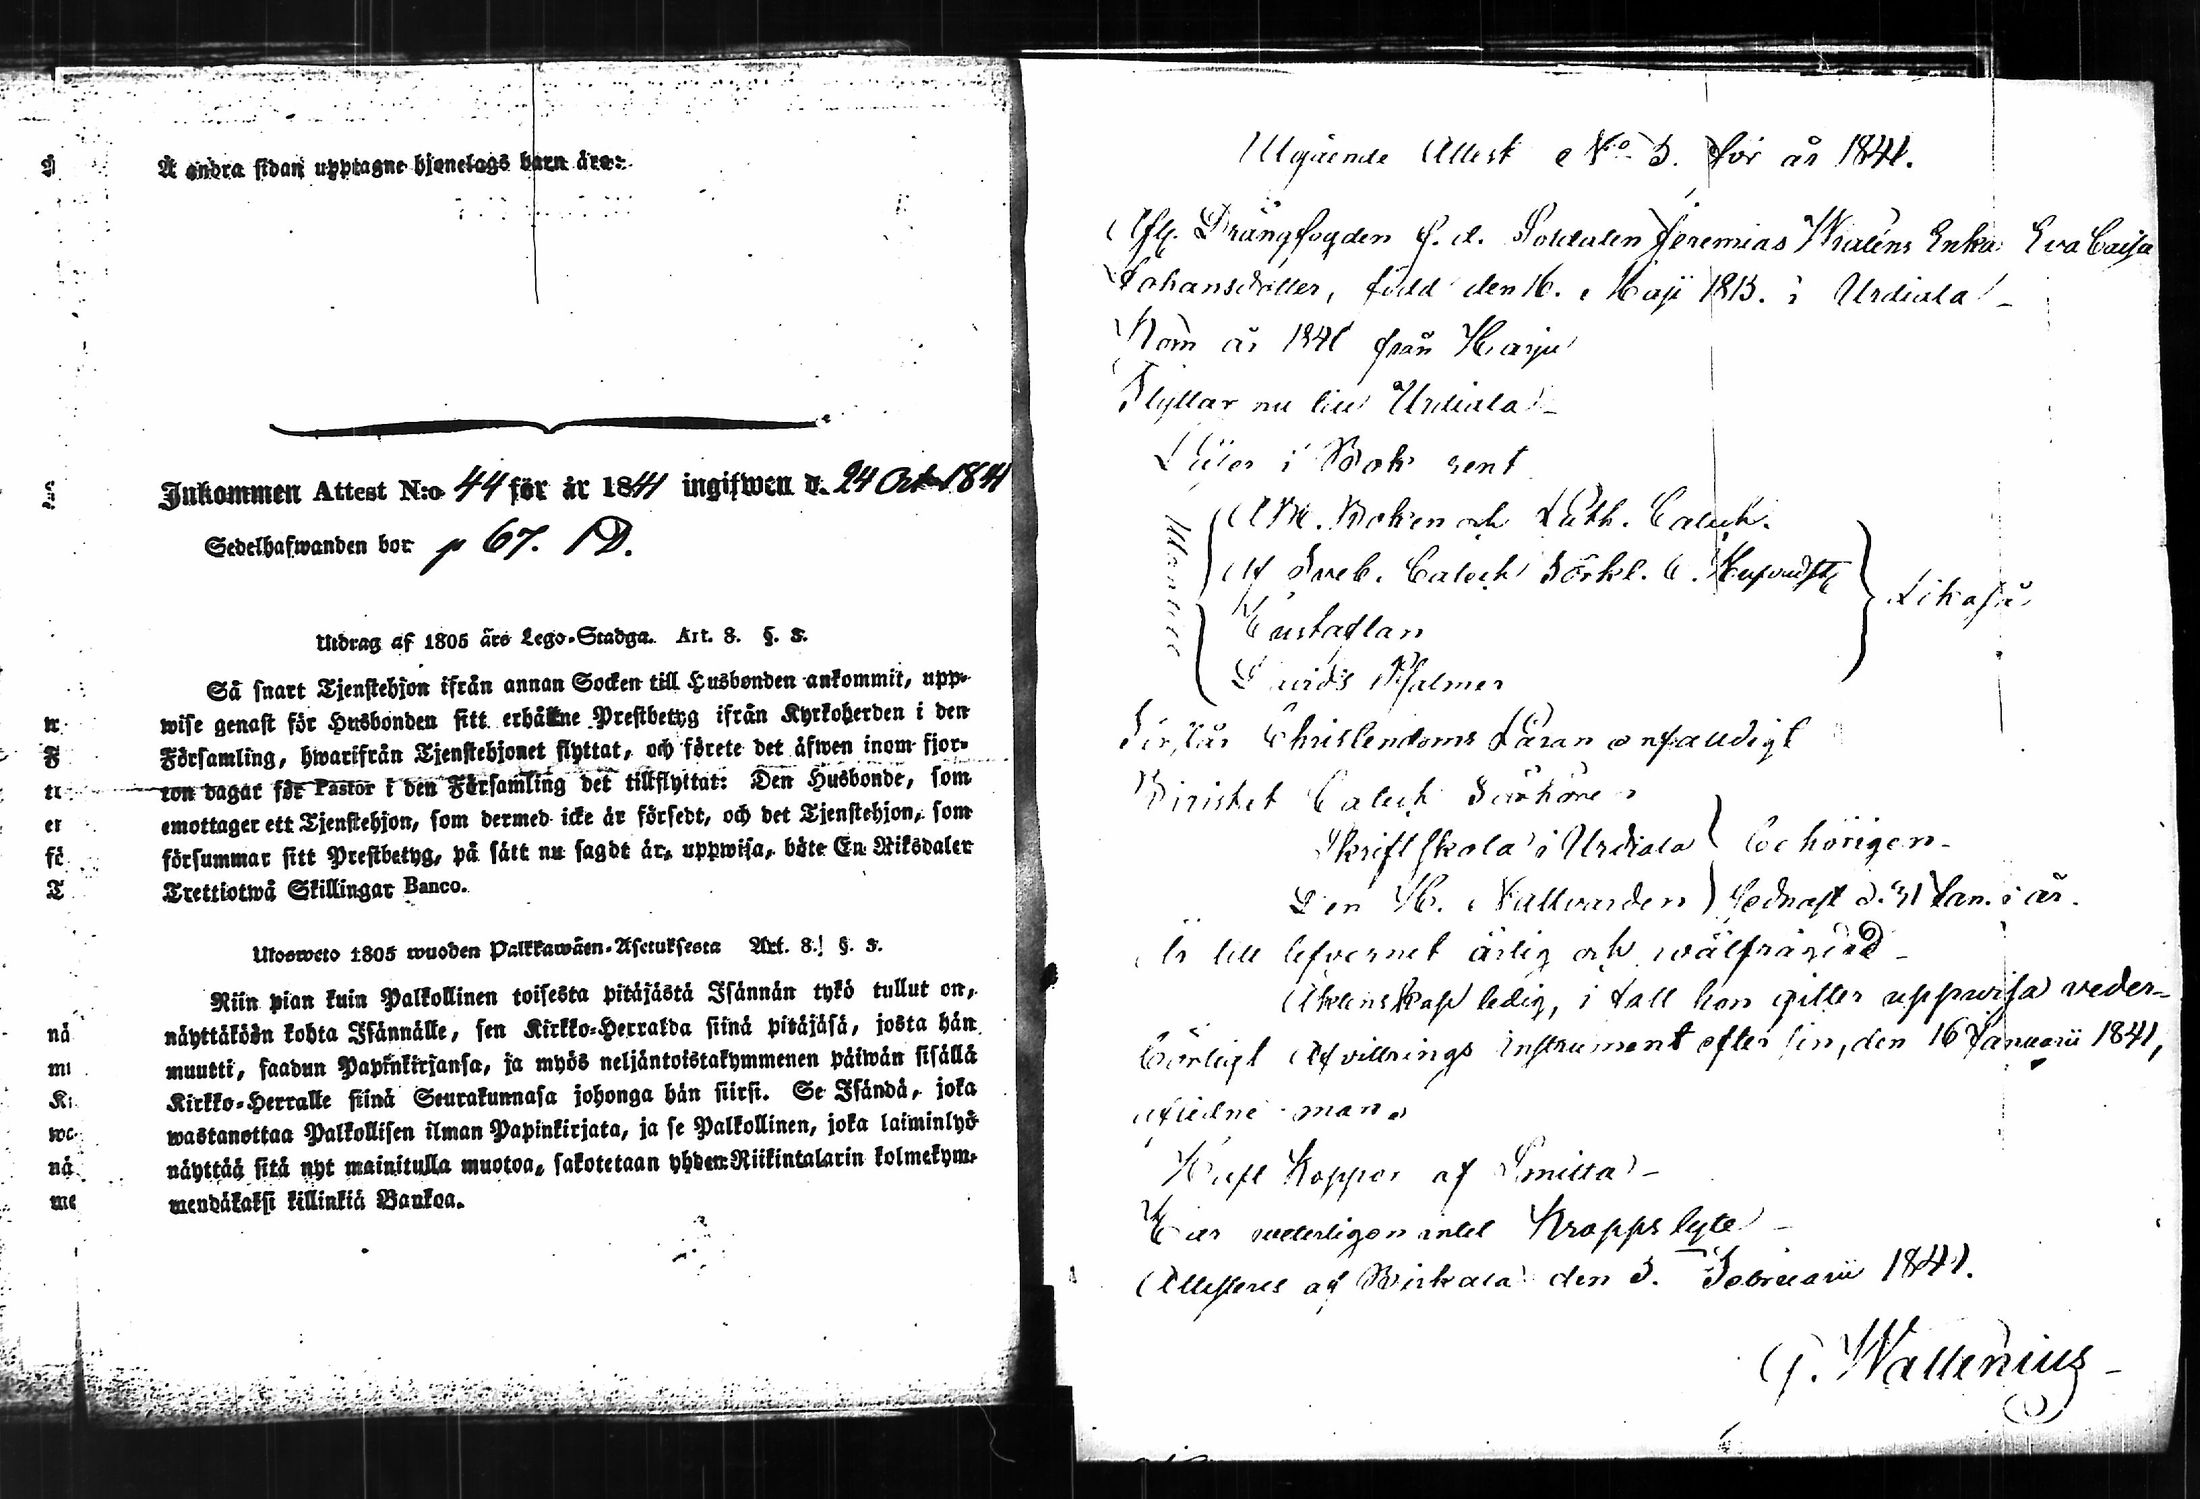 Å andra sidan upptagne hjonelags barn äro:
Inkommen Attest N:o 44 för år 1841 ingifwen d. 24 Oct. 1841
Sedelhafwanden bor p 67.
Utdrag af 1805 års Lego-Stadga. Art. 8. §. 3.
Så snart Tjenstehjon ifrån annan Socken till Husbonden ankommit, upp-
wise genast för Husbonden sitt erhållne Prestbetyg ifrån Kyrkoherden i den
Församling, hwarifrån Tjenstehjonet flyttat, och förete det äfwen inom fjor-
ton dagar för Pastor i den Församling det tillflyttat: Den Husbonde, som
emottager ett Tjenstehjon, som dermed icke är försedt, och det Tjenstehjon, som
försummar sitt Prestbetyg, på sätt nu sagdt är, uppwisa, böte En Riksdaler
Trettiotwå Skillingar Banco.
Utosweto 1805 wuoden Palkkawäen-Asetuksesta Art. 8. §. 3.
Niin pian kuin Palkollinen toisesta pitäjästä Isännän tykö tullut on,
näyttäköön kohta Isännälle, sen Kirkko-Herralda siinä pitäjäsä, josta hän
muutti, saadun Papinkirjansa, ja myös neljäntoistakymmenen päiwän sisällä
Kirkko-Herralle siinä Seurakunnasa johonga hän siirsi. Se Isändä, joka
wastanottaa Palkollisen ilman Papinkirjata, ja se Palkollinen, joka laiminlyö
näyttää sitä nyt mainitulla muotoa, sakotetaan yhden Riikintalarin kolmekym-
mendäkaksi killinkiä Bankoa.
Utgående Attest No 5. för år 1841.
Afl. Drängfogden f. d. Soldaten Jeremias Enka Eva Caisa
Johansdotter, född den 16. Maji 1813. i Urdiala
Kom år 1840 från Harju
Flyttar nu till Urdiala
Läser i Bok rent
Utantill
A B C. Boken och Luth. Catech.
Af Sveb. Catech Förkl.
Hustaflan
Davids Psalmer
Likaså
Förstår Christendoms Läran enfaldigt
Bivistat Catech Förhören
Skriftskola i Urdiala
behörigen
Den H. Nattvarden
sednast d. 31 Jan. i år.
Är till lefvernet ärlig och wälfräjdad
Äktenskap ledig, i fall hon gitter uppwisa veder-
börligt Afvittrings instrument efter sin, den 16 Januarii 1841,
aflidne man.
Haft Koppor af Smitta
Har veterligen intet Kroppslyte
Attesteras af Birkala den 5. Februarii 1841.
G. Wallenius